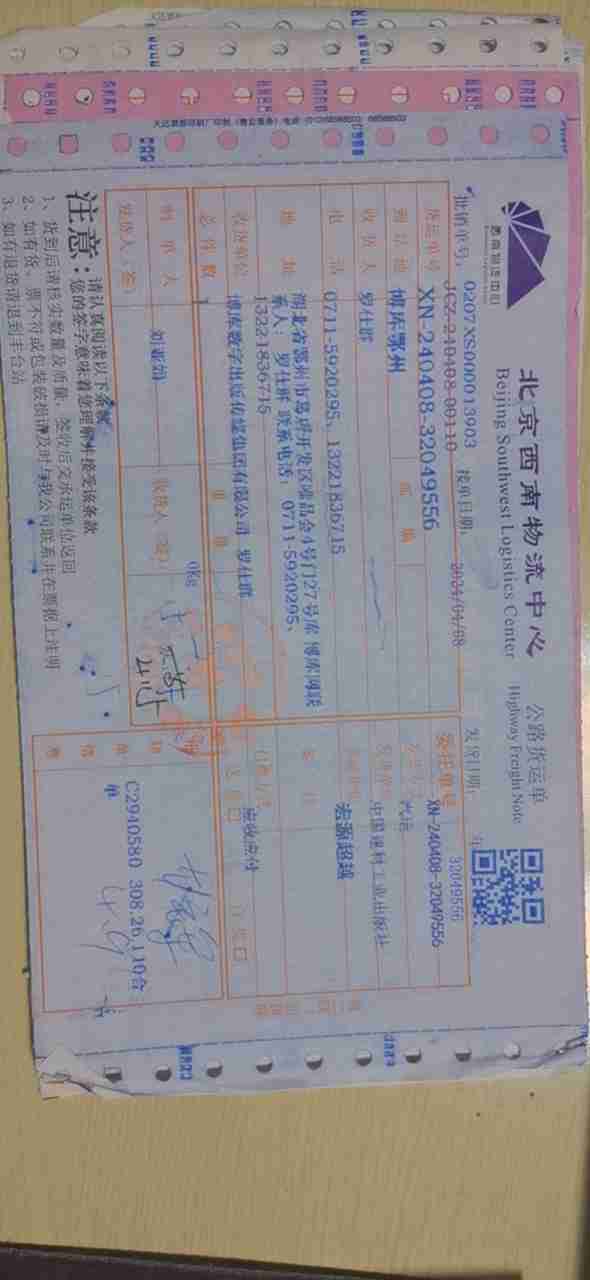 西南物流中心
北京西南物流中心
Beijing Southwest Logistics Center
公路货运单
Highway Freight Note
批销单号: 0207XS000013903 接单日期: 2024/04/08 发货日期: 年
JCZ-240408-00110
32049556
货运单号 XN-240408-32049556 委托单号 XN-240408-32049556
到站地 博库鄂州 邮编 汽运
收货人 罗仕群 中国建材工业出版社
电话 0711-5920295、13221836715 宏源超越
地址 湖北省鄂州市葛店开发区唯品会4号门27号库 博库网联
系人: 罗仕群 联系电话: 0711-5920295、
13221836715
收货单位 博库数字出版传媒集团有限公司 罗仕群 应收应付
总件数 1 重量 0kg
制单人 收货人(签)
发货人(签)
C2940580 308.26 110合
单
注意:
请认真阅读以下条款
您的签字意味着您理解并接受该条款
1、货到后请核实数量及质量, 签收后交承运单位返回
2、如有货、票不符或包装破损请及时与我公司联系并在票据上注明
3、如有退货请退到丰台站